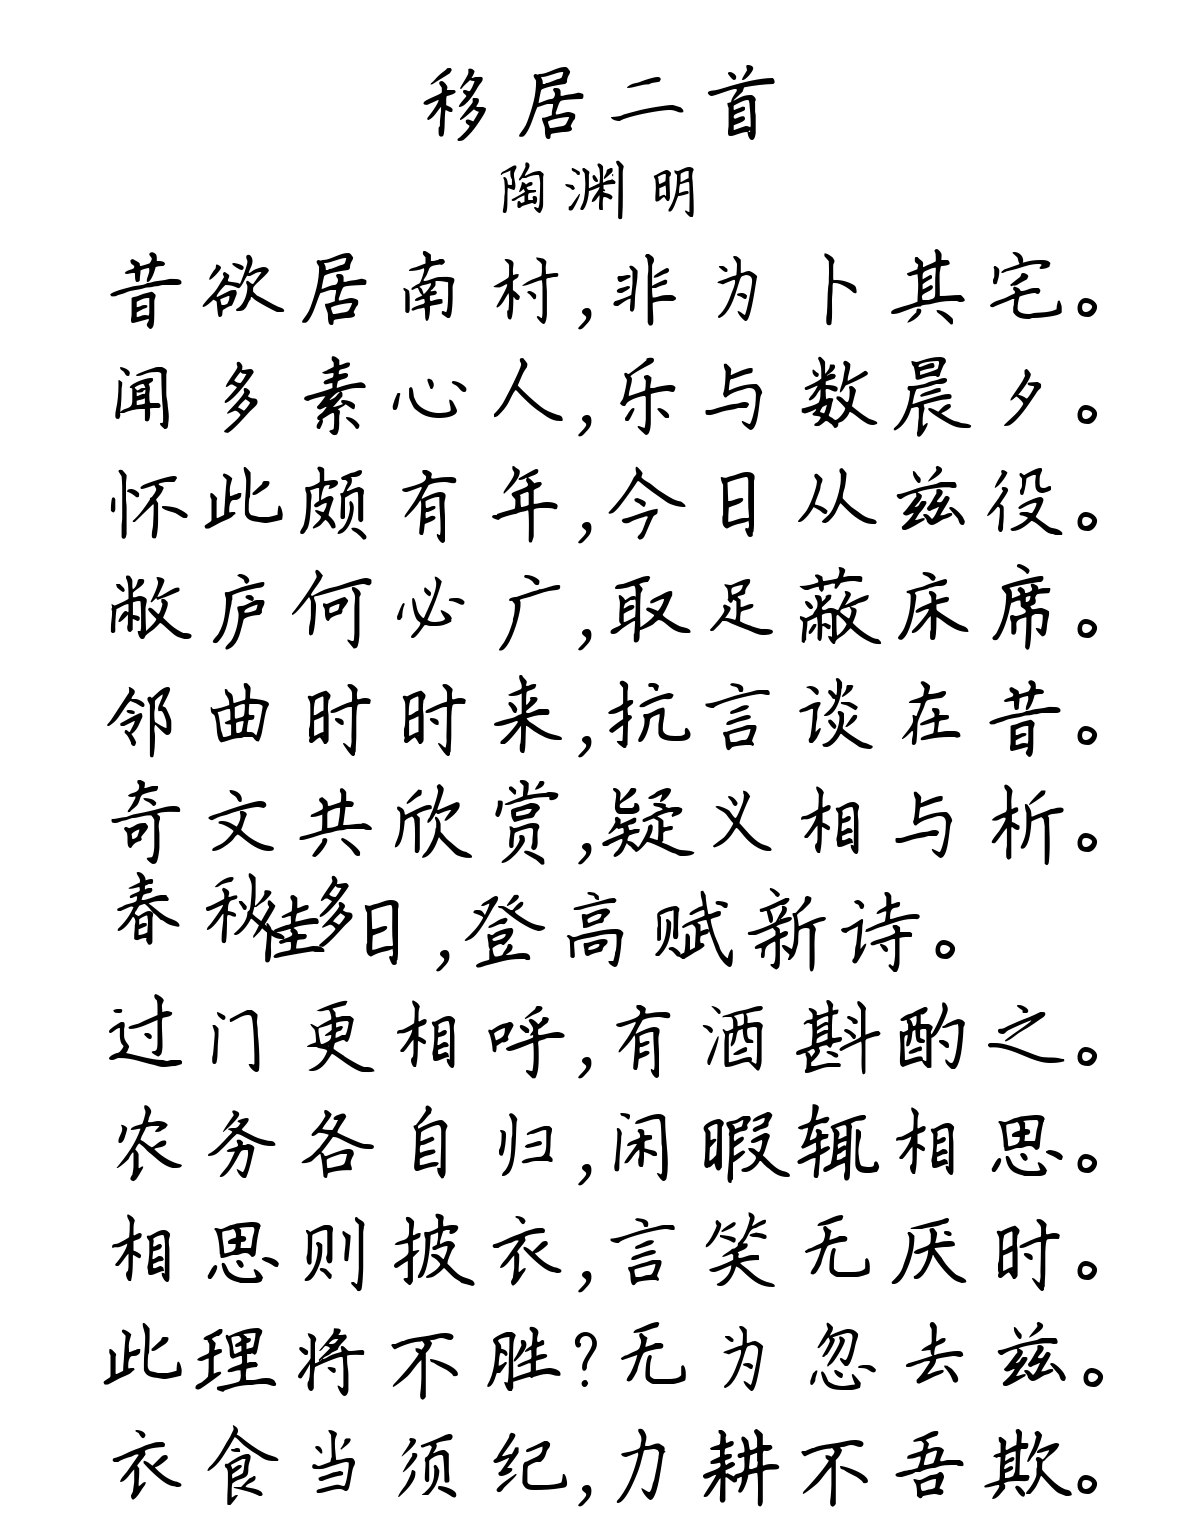 移居二首
陶渊明
昔欲居南村,非为卜其宅。
闻多素心人,乐与数晨夕。
怀此颇有年,今日从兹役。
敝庐何必广,取足蔽床席。
邻曲时时来,抗言谈在昔。
奇文共欣赏,疑义相与析。
春秋多佳日,登高赋新诗。
过门更相呼,有酒斟酌之。
农务各自归,闲暇辄相思。
相思则披衣,言笑无厌时。
此理将不胜?无为忽去兹。
衣食当须纪,力耕不吾欺。